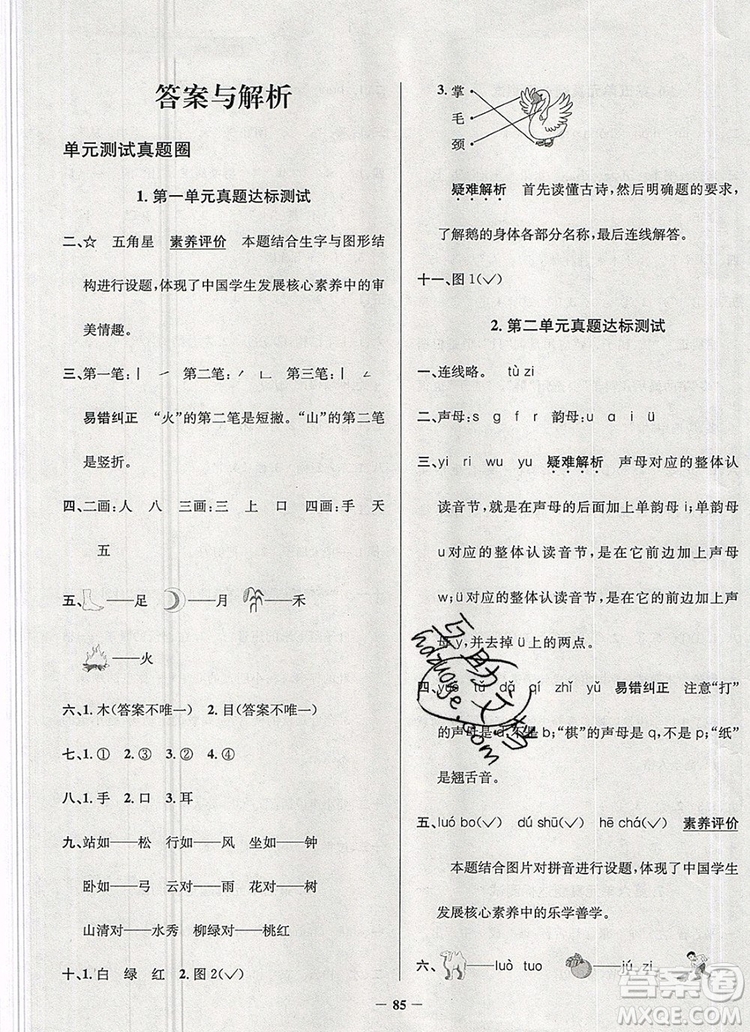 答案与解析
单元测试真题圈
1.第一单元真题达标测试
二、☆ 五角星 素养评价 本题结合生字与图形结
构进行设题,体现了中国学生发展核心素养中的审
美情趣。
三、第一笔:丨 ㇒ 第二笔:㇒ ㇗ 第三笔:丨 ㇒
易错纠正 “火”的第二笔是短撇。“山”的第二笔
是竖折。
四、二画:人 八 三画:三 上 口 四画:手 天
五
五、——足 ——月 ——禾
——火
六、1.木(答案不唯一) 2.目(答案不唯一)
七、1.① 2.③ 3.② 4.④
八、1.手 2.口 3.耳
九、站如——松 行如——风 坐如——钟
卧如——弓 云对——雨 雪对——风
山清对——水秀 柳绿对——桃红
十、1.白 绿 红 2.图2(√)
3.掌
毛
颈
疑难解析 首先读懂古诗,然后明确题的要求,
了解鹅的身体各部分名称,最后连线解答。
十一、图1(√)
2.第二单元真题达标测试
一、连线略。 tù zi
二、声母:s g f r 韵母:u a i ü
三、yi ri wu yu 疑难解析 声母对应的整体认
读音节,是在声母的后面加上单韵母i;单韵母
u对应的整体认读音节,是在它前边加上声母
w;ü对应的整体认读音节,是在它前边加上声
母y,并去掉ü上的两点。
四、 dǎ qí zhǐ yǔ 易错纠正 注意“打”
的声母是d,不是b;“棋”的声母是q,不是p;“纸”
是翘舌音。
五、luó bo(√) dú shū(√) hē chá(√) 素养评价
本题结合图片对拼音进行设题,体现了中国学生
发展核心素养中的乐学善学。
六、——luò tuo ——jú zi
互助文档
hdzuoye.com
— 85 —
答案圈
MXQE.COM